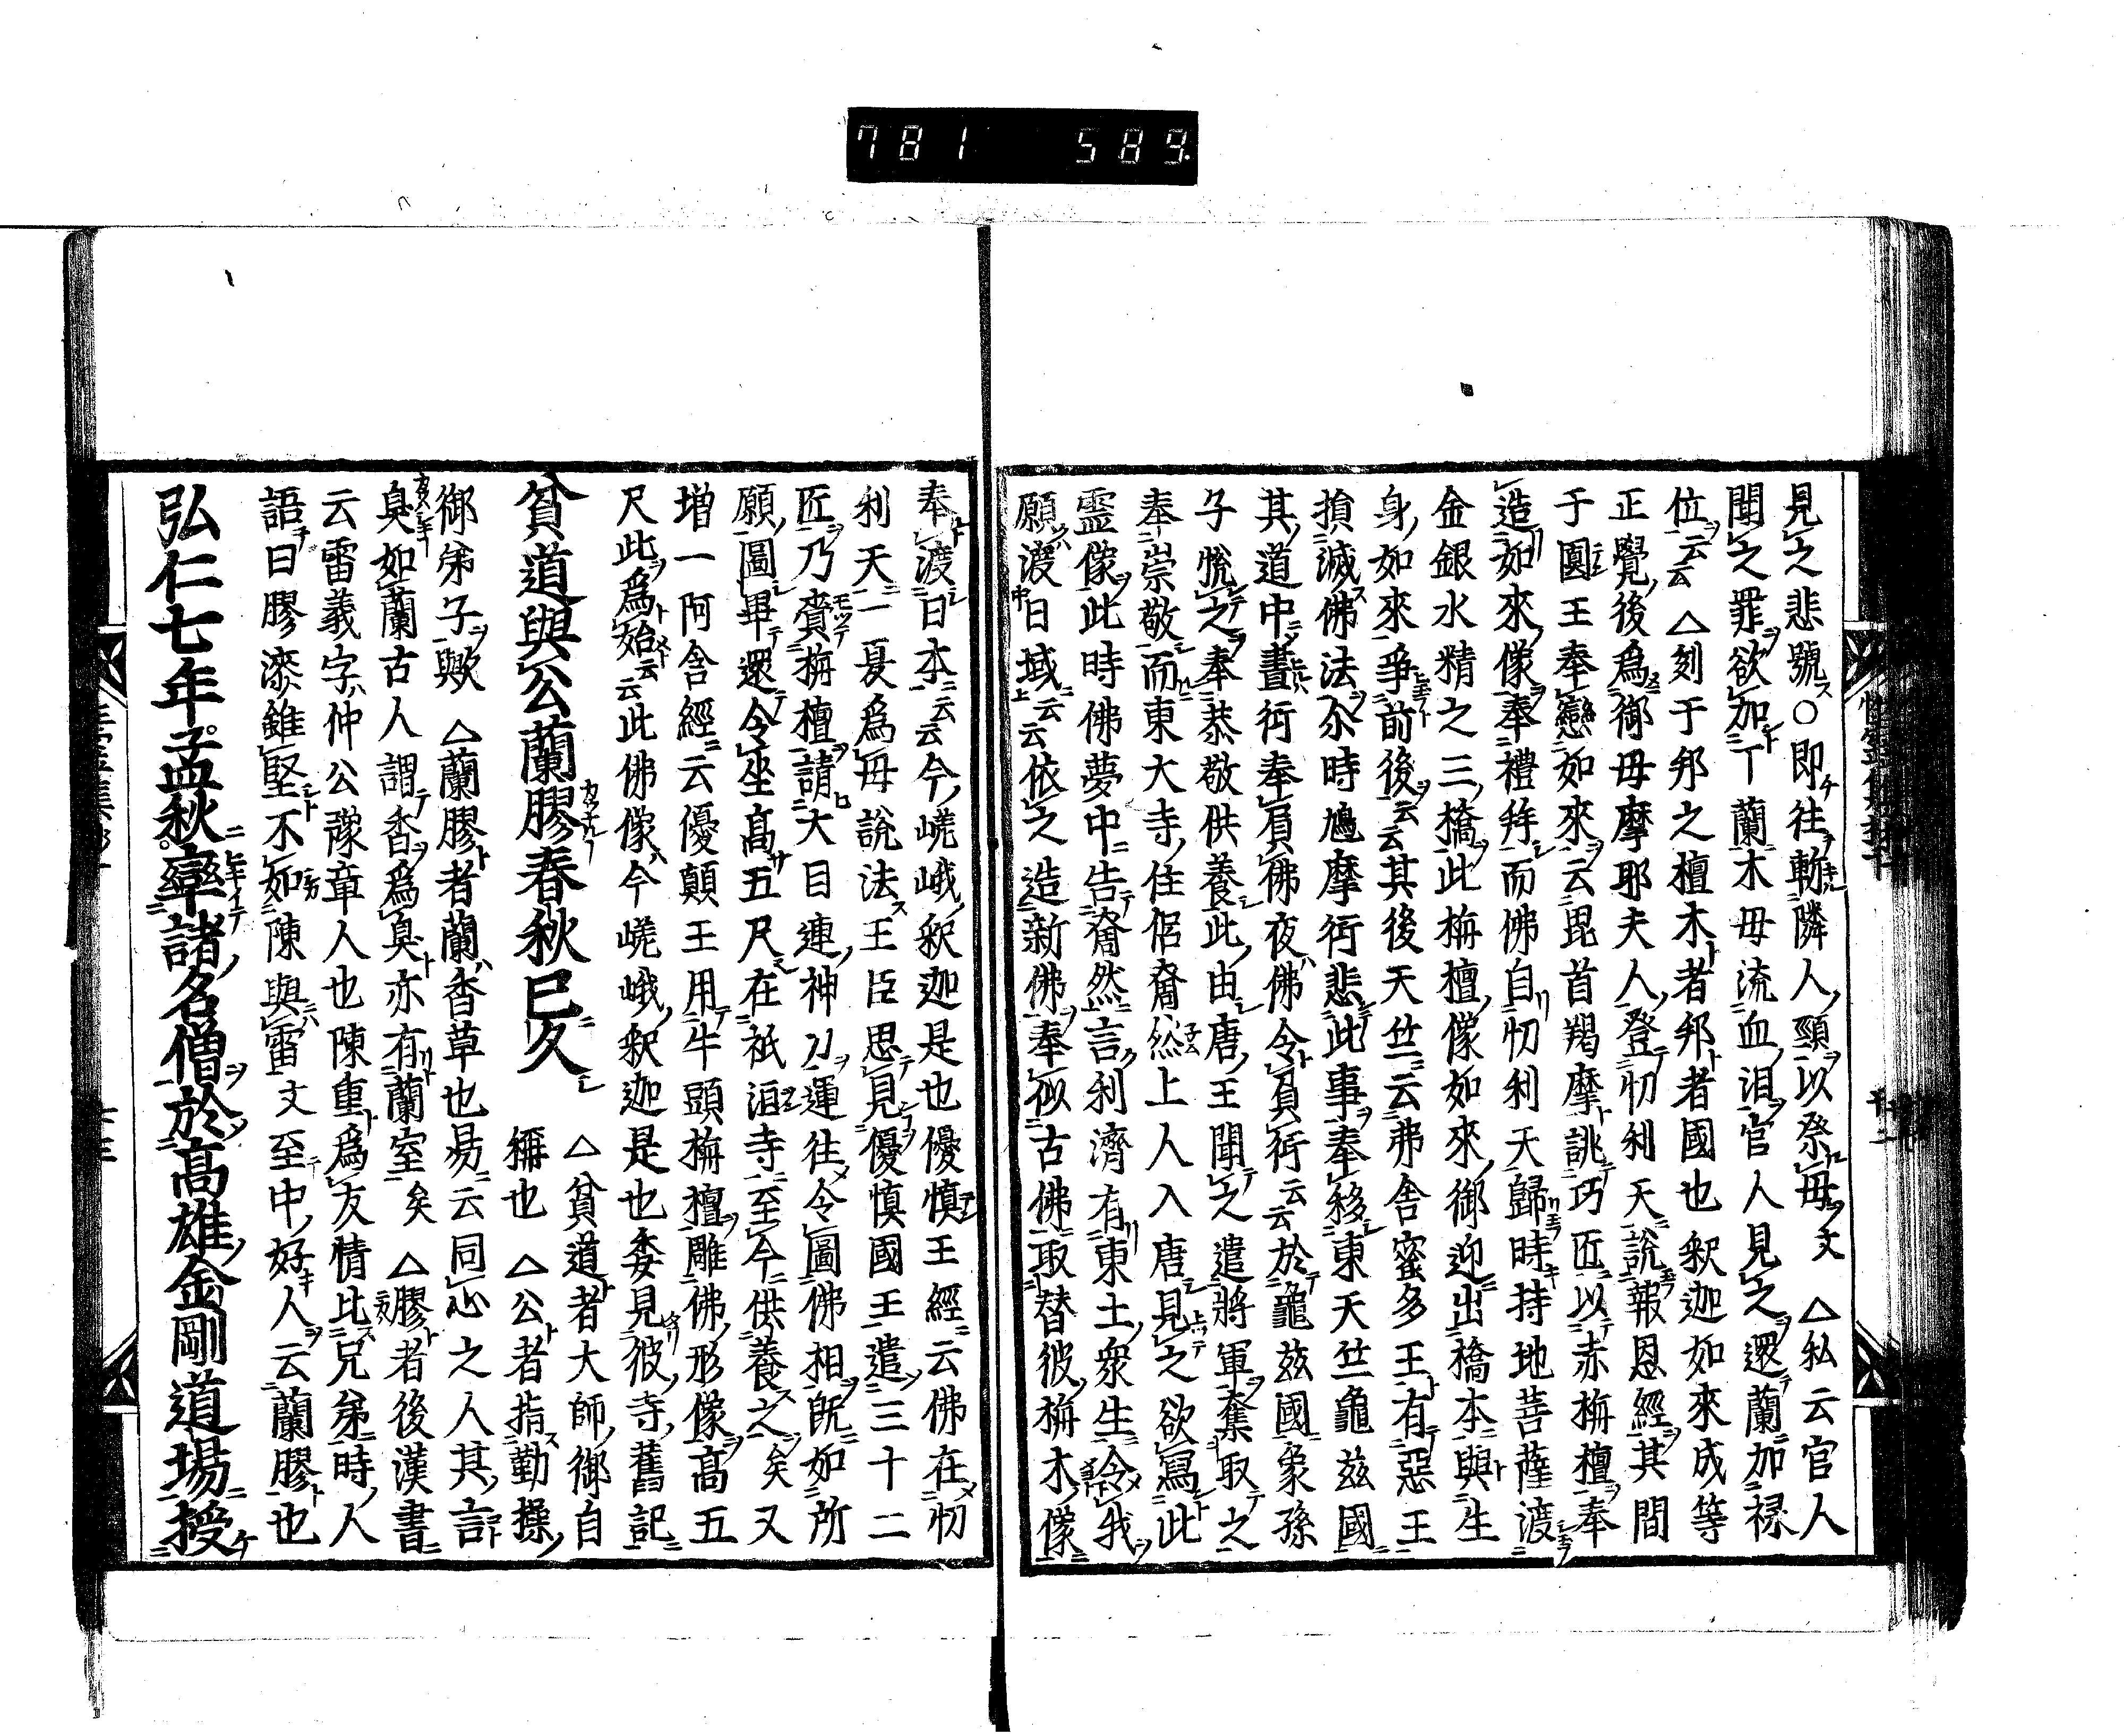 781 589.
見之悲號ス〇即往斬隣人頸以祭母文 △私云官人
聞之罪欲加丁蘭木母流血泪官人見之還蘭加禄
位云云 △刻于邦之檀木者邦者國也釈迦如來成等
正覺後爲御母摩耶夫人登忉利天説報恩經其間
于圓王奉戀如來云毘首羯摩誂巧匠以赤栴檀奉
造如來像奉禮拜而佛自忉利天歸時持地菩薩渡
金銀水精之三橋此栴檀像如來御迎出橋本與生
身如來爭前後云云其後天竺云弗舎蜜多王有惡王
損滅佛法尒時鳩摩衍悲此事奉移東天竺龜玆國
其道中晝衍奉負佛夜佛令負衍云云於龜玆國象孫
子恱之奉恭敬供養此由唐王聞之遣將軍奪取之
奉崇敬而東大寺住侶奝然上人入唐見之欲寫此
靈像此時佛夢中告奝然言利濟有東土衆生令我
願渡日域云云依之造新佛奉似古佛取替彼栴木像
奉渡日本云云今嵯峨釈迦是也優慎王經云佛在忉
利天一夏爲母説法王臣思見優慎國王遣三十二
匠乃賷栴檀請大目連神力運往令圖佛相既如所
願圖畢還令坐髙五尺在祇洹寺至今供養之矣又
増一阿含經云優顛王用牛頭栴檀雕佛形像髙五
尺此爲始云云此佛像今嵯峨釈迦是也委見彼寺舊記
貧道與公蘭膠春秋已久 △貧道者大師御自
稱也 △公者指勤操
御弟子歟 △蘭膠者蘭香草也易云同心之人其言
臭如蘭古人謂香爲臭亦有蘭室矣 △膠者後漢書
云雷義字仲公豫章人也陳重爲友情比兄弟時人
語曰膠漆雖堅不如陳與雷文至中好人云蘭膠也
弘仁七年孟秋率諸名僧於髙雄金剛道場授